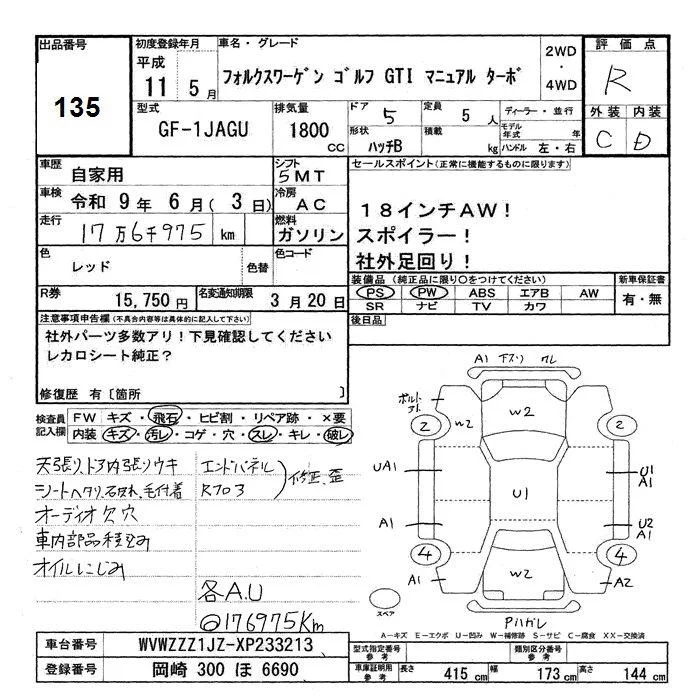 出品番号
135
初度登録年月
平成
11 5月
車名・グレード
フォルクスワーゲン ゴルフ GTI マニュアル ターボ
2WD
・
4WD
評価点
R
外装 内装
C D
型式
GF-1JAGU
排気量
1800
CC
ドア
5
形状
ハッチB
定員
5人
積載
kg
ディーラー・並行
モデル年式 年
ハンドル 左・右
車歴
自家用
シフト
5MT
車検
令和 9年 6月( 3日)
冷房
AC
走行
17万6千975 km
燃料
ガソリン
色
レッド
色替
色コード
R券
15,750円
名変通知期限
3月20日
セールスポイント(正常に機能するものに限ります)
18インチAW!
スポイラー!
社外足回り!
装備品(純正品に限り○をつけてください)
PS PW ABS エアB AW
SR ナビ TV カワ
新車保証書
有・無
後日品
注意事項申告欄(不具合内容等は具体的に記入して下さい)
社外パーツ多数アリ!下見確認してください
レカロシート純正?
修復歴 有〔箇所 〕
検査員記入欄
FW キズ・飛石・ヒビ割・リペア跡・×要
内装 キズ・汚レ・コゲ・穴・スレ・キレ・破レ
天張り、ドア内張りウキ
シートヘタリ、破れ、毛付着
オーディオ欠 穴
車内部品積込み
オイルにじみ
エンドパネル
Rフロア
修正、歪
各A.U
◎176975Km
A1 下スリ ワレ
ボルト
W2
2
W2
2
UA1
U1
U1
A1
A1
U2
A1
4
4
A1
W2
A2
スペア
Pハガレ
A-キズ E-エクボ U-凹み W-補修跡 S-サビ C-腐食 XX-交換済
車台番号
WVWZZZ1JZ-XP233213
登録番号
岡崎 300 ほ 6690
型式指定番号
参考
類別区分番号
参考
車庫証明用
参考
長さ 415cm 幅 173cm 高さ 144cm